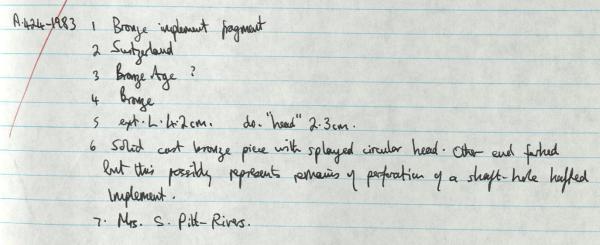 A.424-1983 1 Bronze implement fragment
2 Switzerland
3 Bronze Age ?
4 Bronze
5 ext. L. 4.2cm. do. "head" 2.3cm.
6 Solid cast bronze piece with splayed circular head. Other end forked
but this possibly represents remains of perforation of a shaft-hole hafted
implement.
7. Mrs. S. Pitt-Rivers.